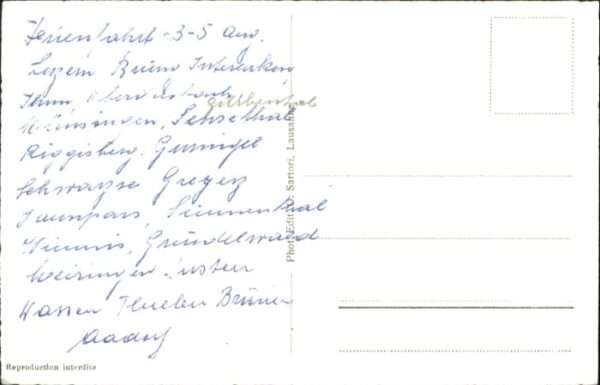 Ferienfahrt - 3-5 Aug.
Luzern Brünn Interlaken
Thun,
Gürbenthal
Münsingen,
Riggisberg, Gurnigel
Schwarzsee Greyerz
Jaunpass, Simmenthal
Wimmis, Gründelwald
Meiringen Susten
Wassen Flüelen Brünnen
Aadorf
Phot. Edit. O. Sartori, Lausanne
Reproduction interdite